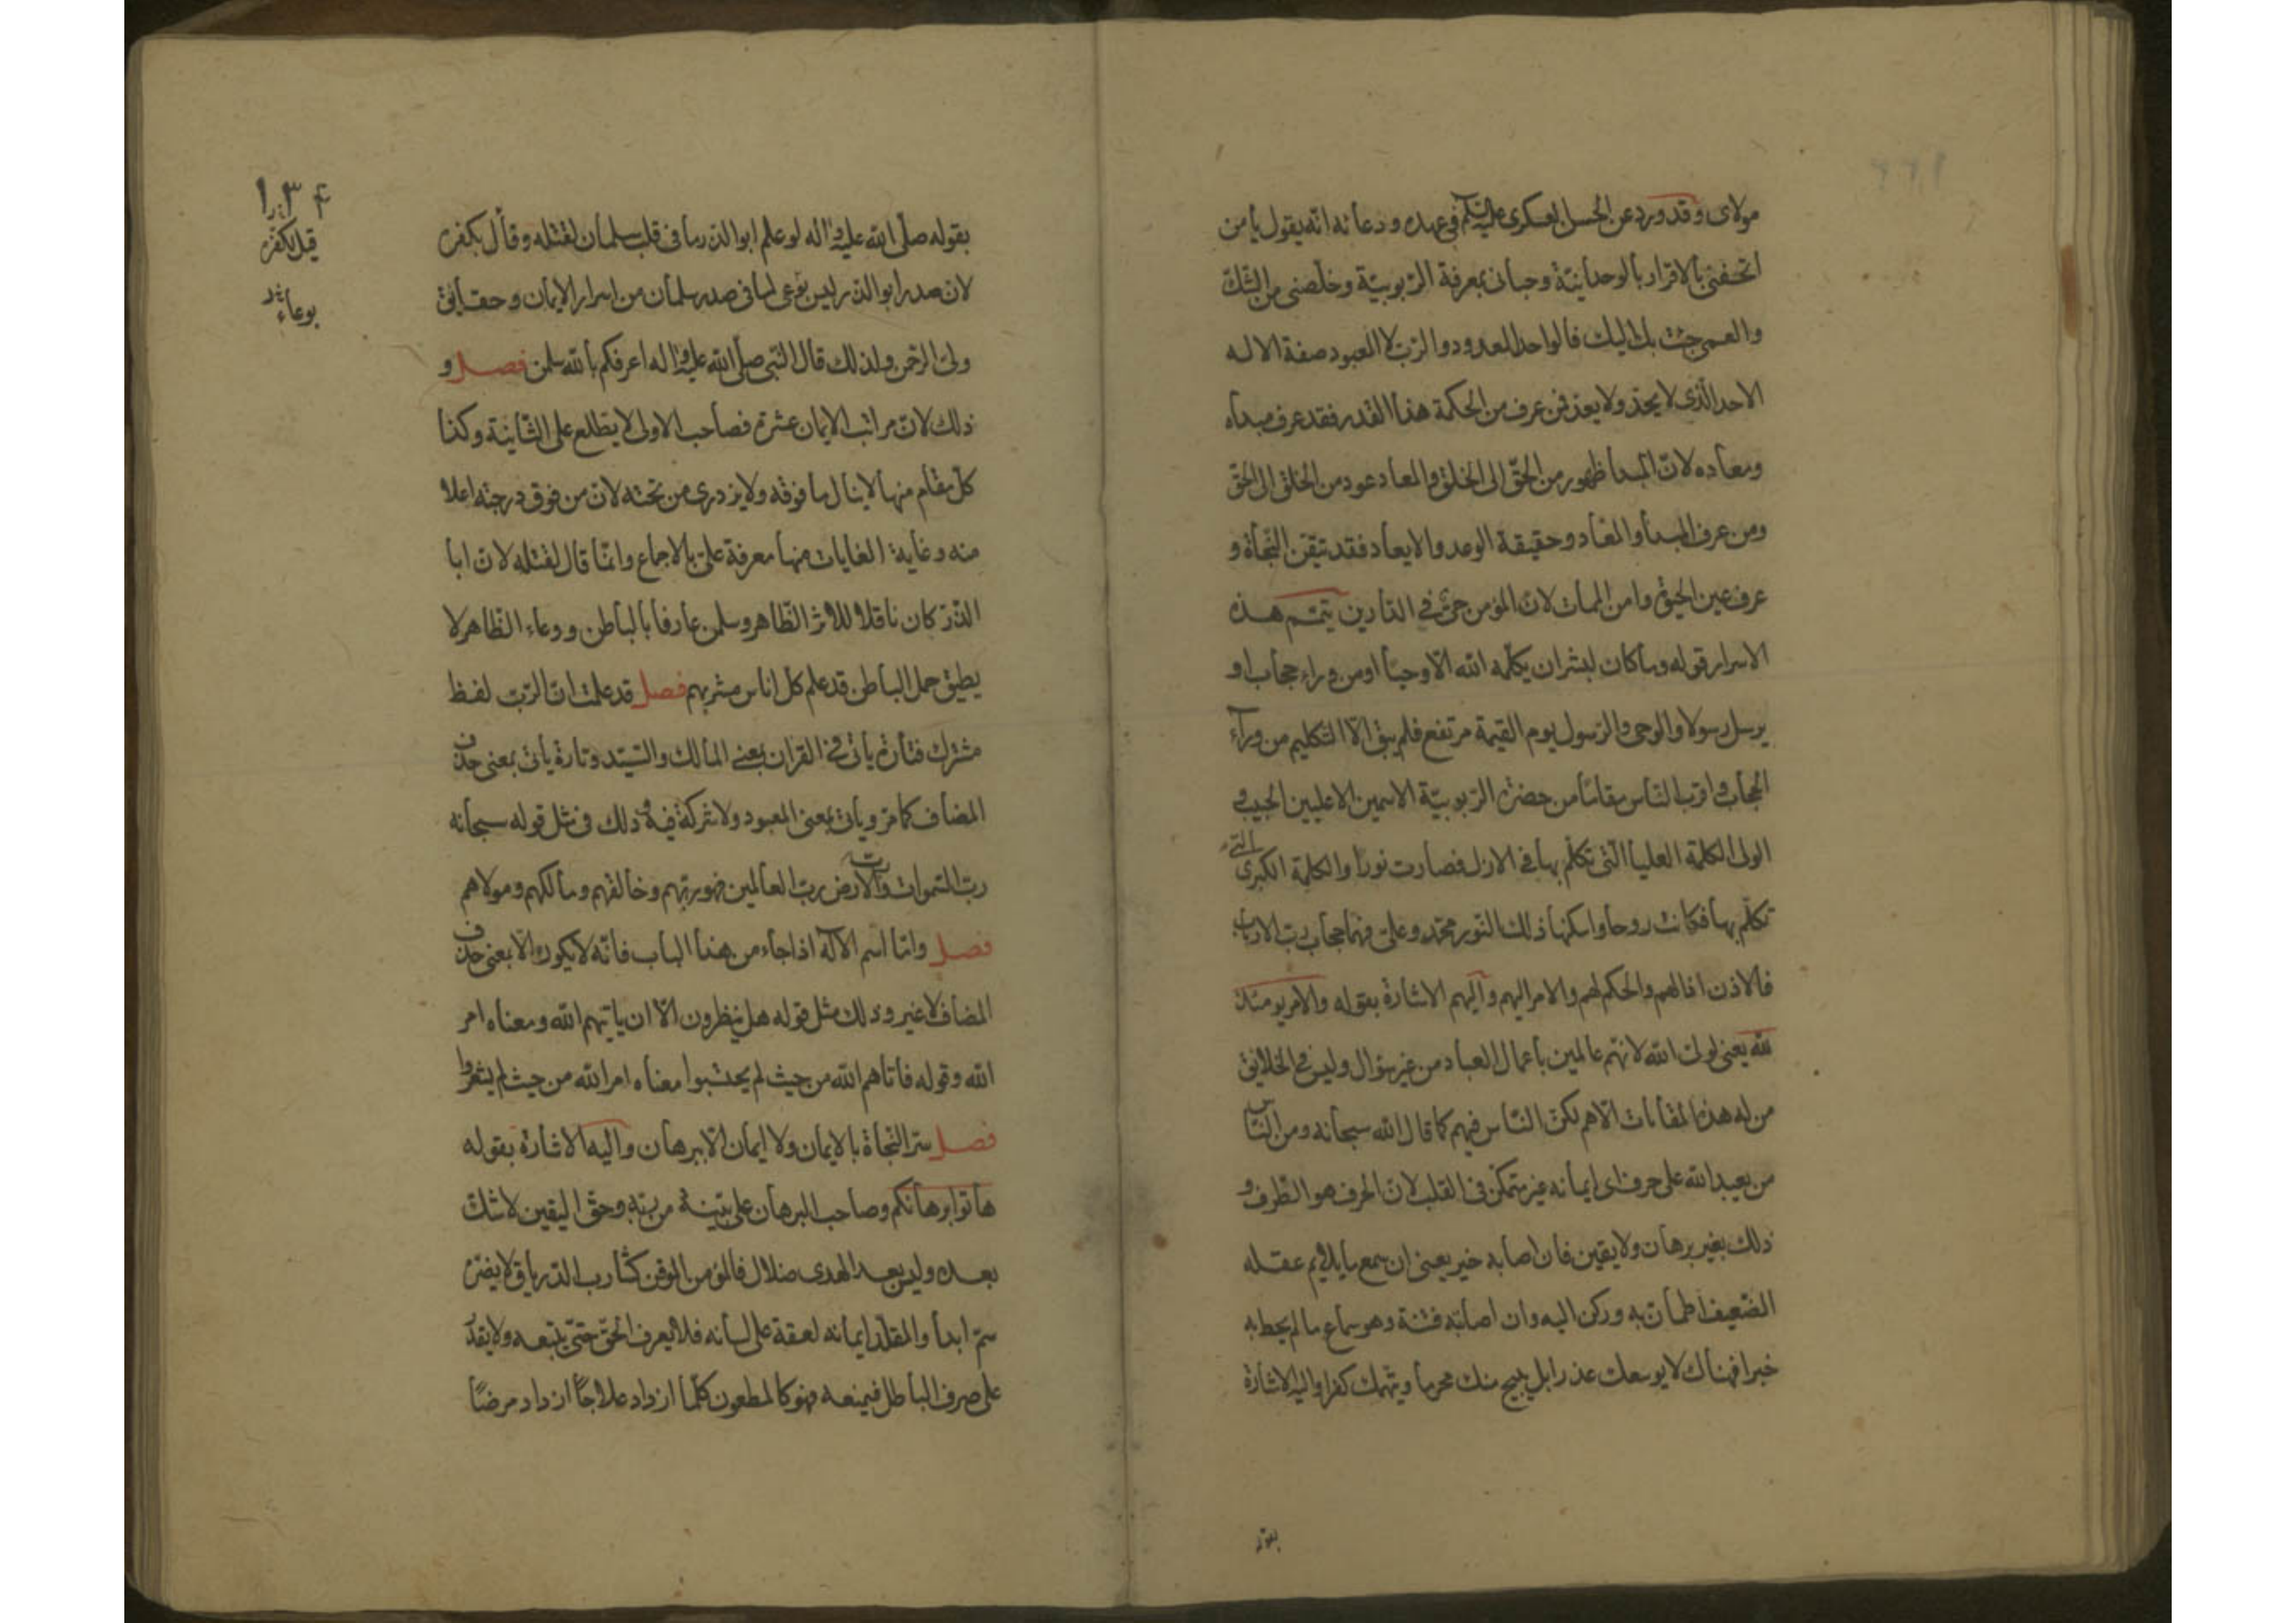 مولای وقد ورد عن الحسن العسکری علیه السلم فی عهده ودعائه انه یقول یا من
اتحفنی بالاقرار بالوحدانیة وحبانی بمعرفة الربوبیة وخلصنی من الشک
والعمی جئت بک الیک فالواحد المعدود والرب لا المعبود صفة الاله
الاحد الذی لا یحد ولا یعد فمن عرف من الحکمة هذا القدر فقد عرف مبداه
ومعاده لان المبدا ظهور من الحق الی الخلق والمعاد عود من الخلق الی الحق
ومن عرف المبدا والمعاد وحقیقة الوعد والایعاد فقد تیقن النجاة و
عرف عین الحیوة وامن الممات لان المؤمن حی فی الدارین یتمم هذه
الاسرار قوله وما کان لبشر ان یکلمه الله الا وحیا او من وراء حجاب او
یرسل رسولا والوحی والرسول یوم القیمة مرتفع فلم یبق الا التکلیم من وراء
الحجاب واقرب الناس مقاما من حضرة الربوبیة الاسمین الاعلیین الحبیب و
الولی الکلمة العلیا التی تکلم بها فی الازل فصارت نورا والکلمة الکبری التی
تکلم بها فکانت روحا واسکنها ذلک النور محمد وعلی فهما حجاب رب الارباب
فالاذن اذا لهم والحکم لهم والامر الیهم والیهم الاشارة بقوله والامر یومئذ
لله یعنی لولی الله لانهم عالمین باعمال العباد من غیر سؤال ولیس فی الخلایق
من له هذه المقامات الا هم لکن الناس فیهم کما قال الله سبحانه ومن الناس
من یعبد الله علی حرف ای ایمانه غیر متمکن فی القلب لان الحرف هو الطرف و
ذلک بغیر برهان ولا یقین فان اصابه خیر یعنی ان سمع ما یلایم عقله
الضعیف اطمان به ورکن الیه وان اصابته فتنة وهو سماع ما لم یحط به
خبرا فهناک لا یوسعک عذرا بل یبیح منک محرما ویتهمک کفرا والیه الاشارة
بقوله
۱۳۴
قیل بکفره
بوعاء
بقوله صلی الله علیه واله لو علم ابو الذر ما فی قلب سلمان لقتله وقال بکفره
لان صدر ابو الذر لیس بوعی لما فی صدر سلمان من اسرار الایمان وحقایق
ولی الرحمن ولذلک قال النبی صلی الله علیه واله اعرفکم بالله سلمن فصل و
ذلک لان مراتب الایمان عشرة فصاحب الاولی لا یطلع علی الثانیة وکذا
کل مقام منها لا ینال ما فوقه ولا یزدری من تحته لان من فوق درجته اعلا
منه وغایة الغایات منها معرفة علی بالاجماع وانما قال لقتله لان ابا
الذر کان ناقلا للاثر الظاهر وسلمن عارفا بالباطن ووعاء الظاهر لا
یطیق حمل الباطن قد علم کل اناس مشربهم فصل قد علمت ان الرب لفظ
مشترک فتارة یاتی فی القران بمعنی المالک والسید وتارة یاتی بمعنی حذف
المضاف کما مر ویاتی بمعنی المعبود ولا شرکة فیه وذلک فی مثل قوله سبحانه
رب السموات ورب الارض رب العالمین فهو ربهم وخالقهم ومالکهم ومولاهم
فصل واما اسم الاله اذا جاء من هذا الباب فانه لا یکون الا بمعنی حذف
المضاف لا غیر وذلک مثل قوله هل ینظرون الا ان یاتیهم الله ومعناه امر
الله وقوله فاتاهم الله من حیث لم یحتسبوا معناه امر الله من حیث لم یشعروا
فصل سر النجاة بالایمان ولا ایمان الا ببرهان والیه الاشارة بقوله
هاتوا برهانکم وصاحب البرهان علی بینة من ربه وحق الیقین لا شک
بعده ولیس بعد الهدی ضلال فالمؤمن الموقن کشارب الدریاق لا یضره
سم ابدا والمقلد ایمانه لعقة علی لسانه فلا یعرف الحق حتی یتبعه ولا یقدر
علی صرف الباطل فیمنعه فهو کالمطعون کلما ازداد علاجا ازداد مرضا